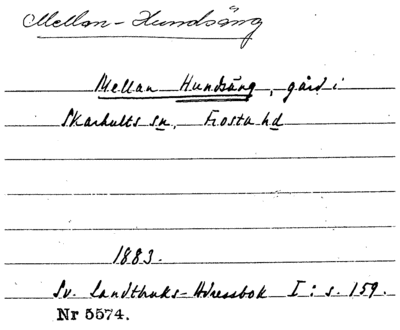 Mellan-Hundsäng
Mellan Hundsäng, gård i
Skarhults sn, Frosta hd
1883.
Sv. Landtbruks-Adressbok I: s. 159.
Nr 5574.